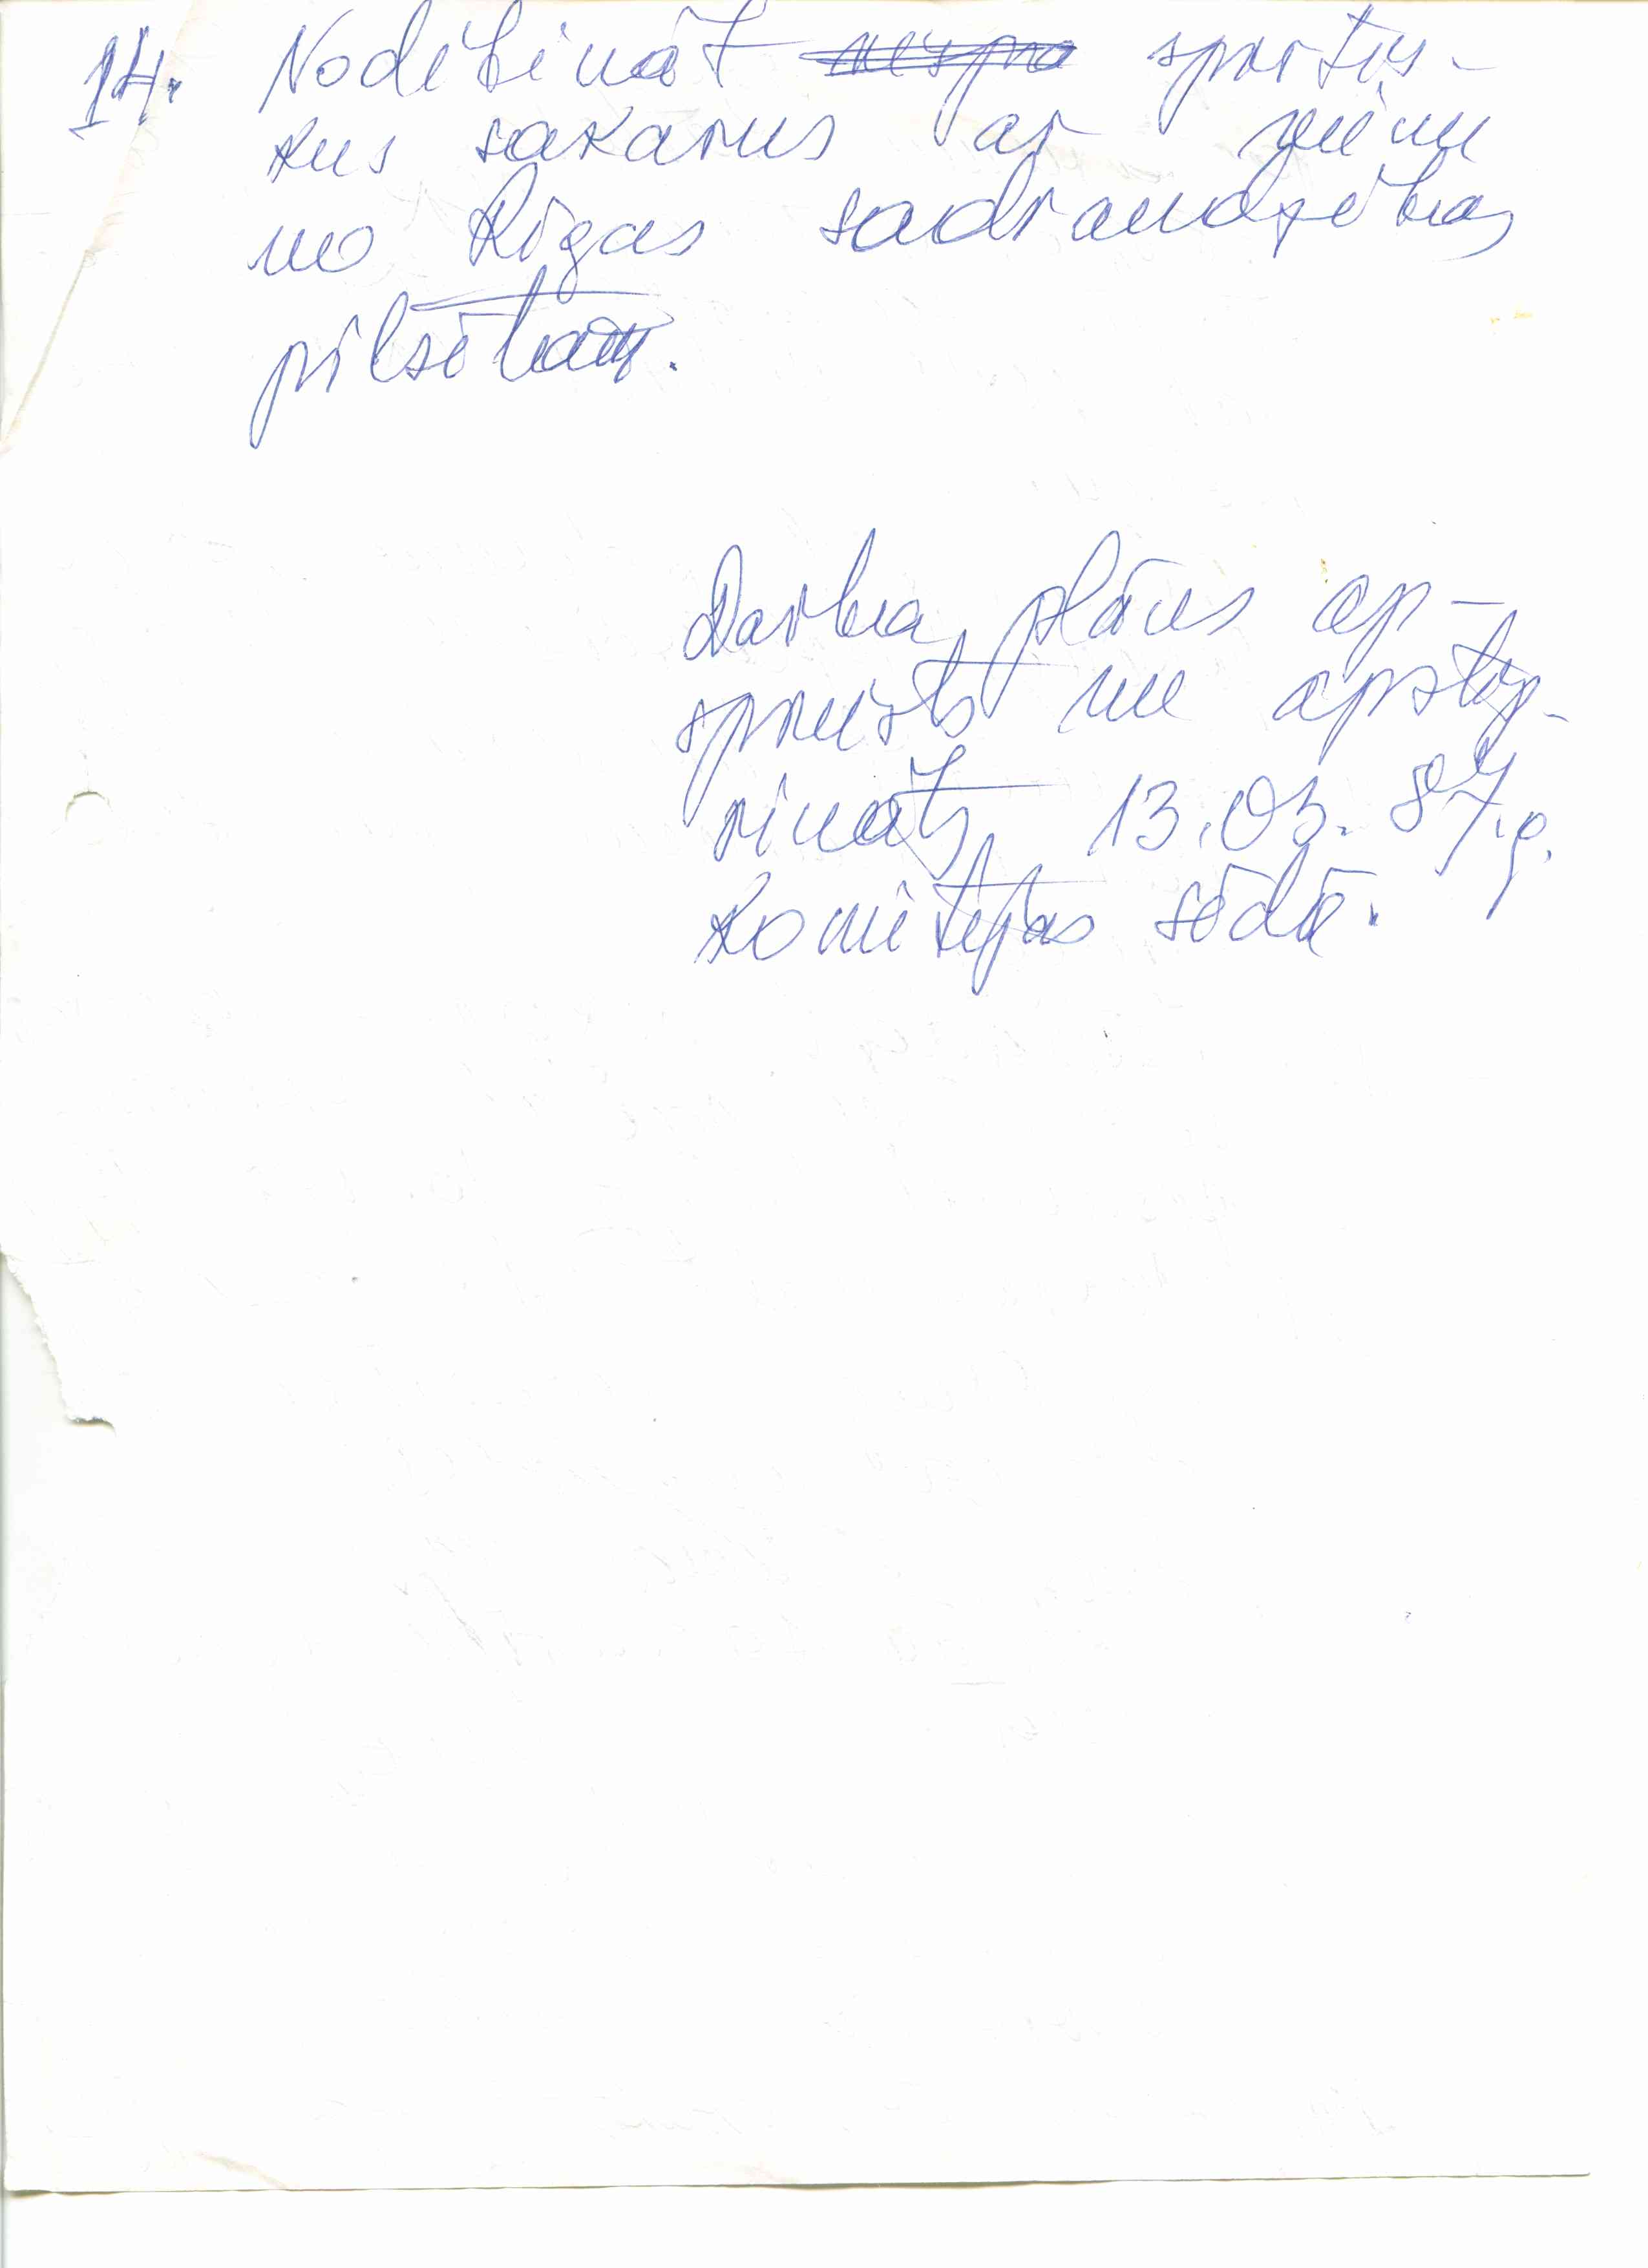 14. Nodibināt sportis-
kus sakarus ar vienu
no Rīgas sadraudzības
pilsētam.
Darba plāns ap-
spriests un apstip-
rināts 13.03.87.g.
Komitejas sēdē.